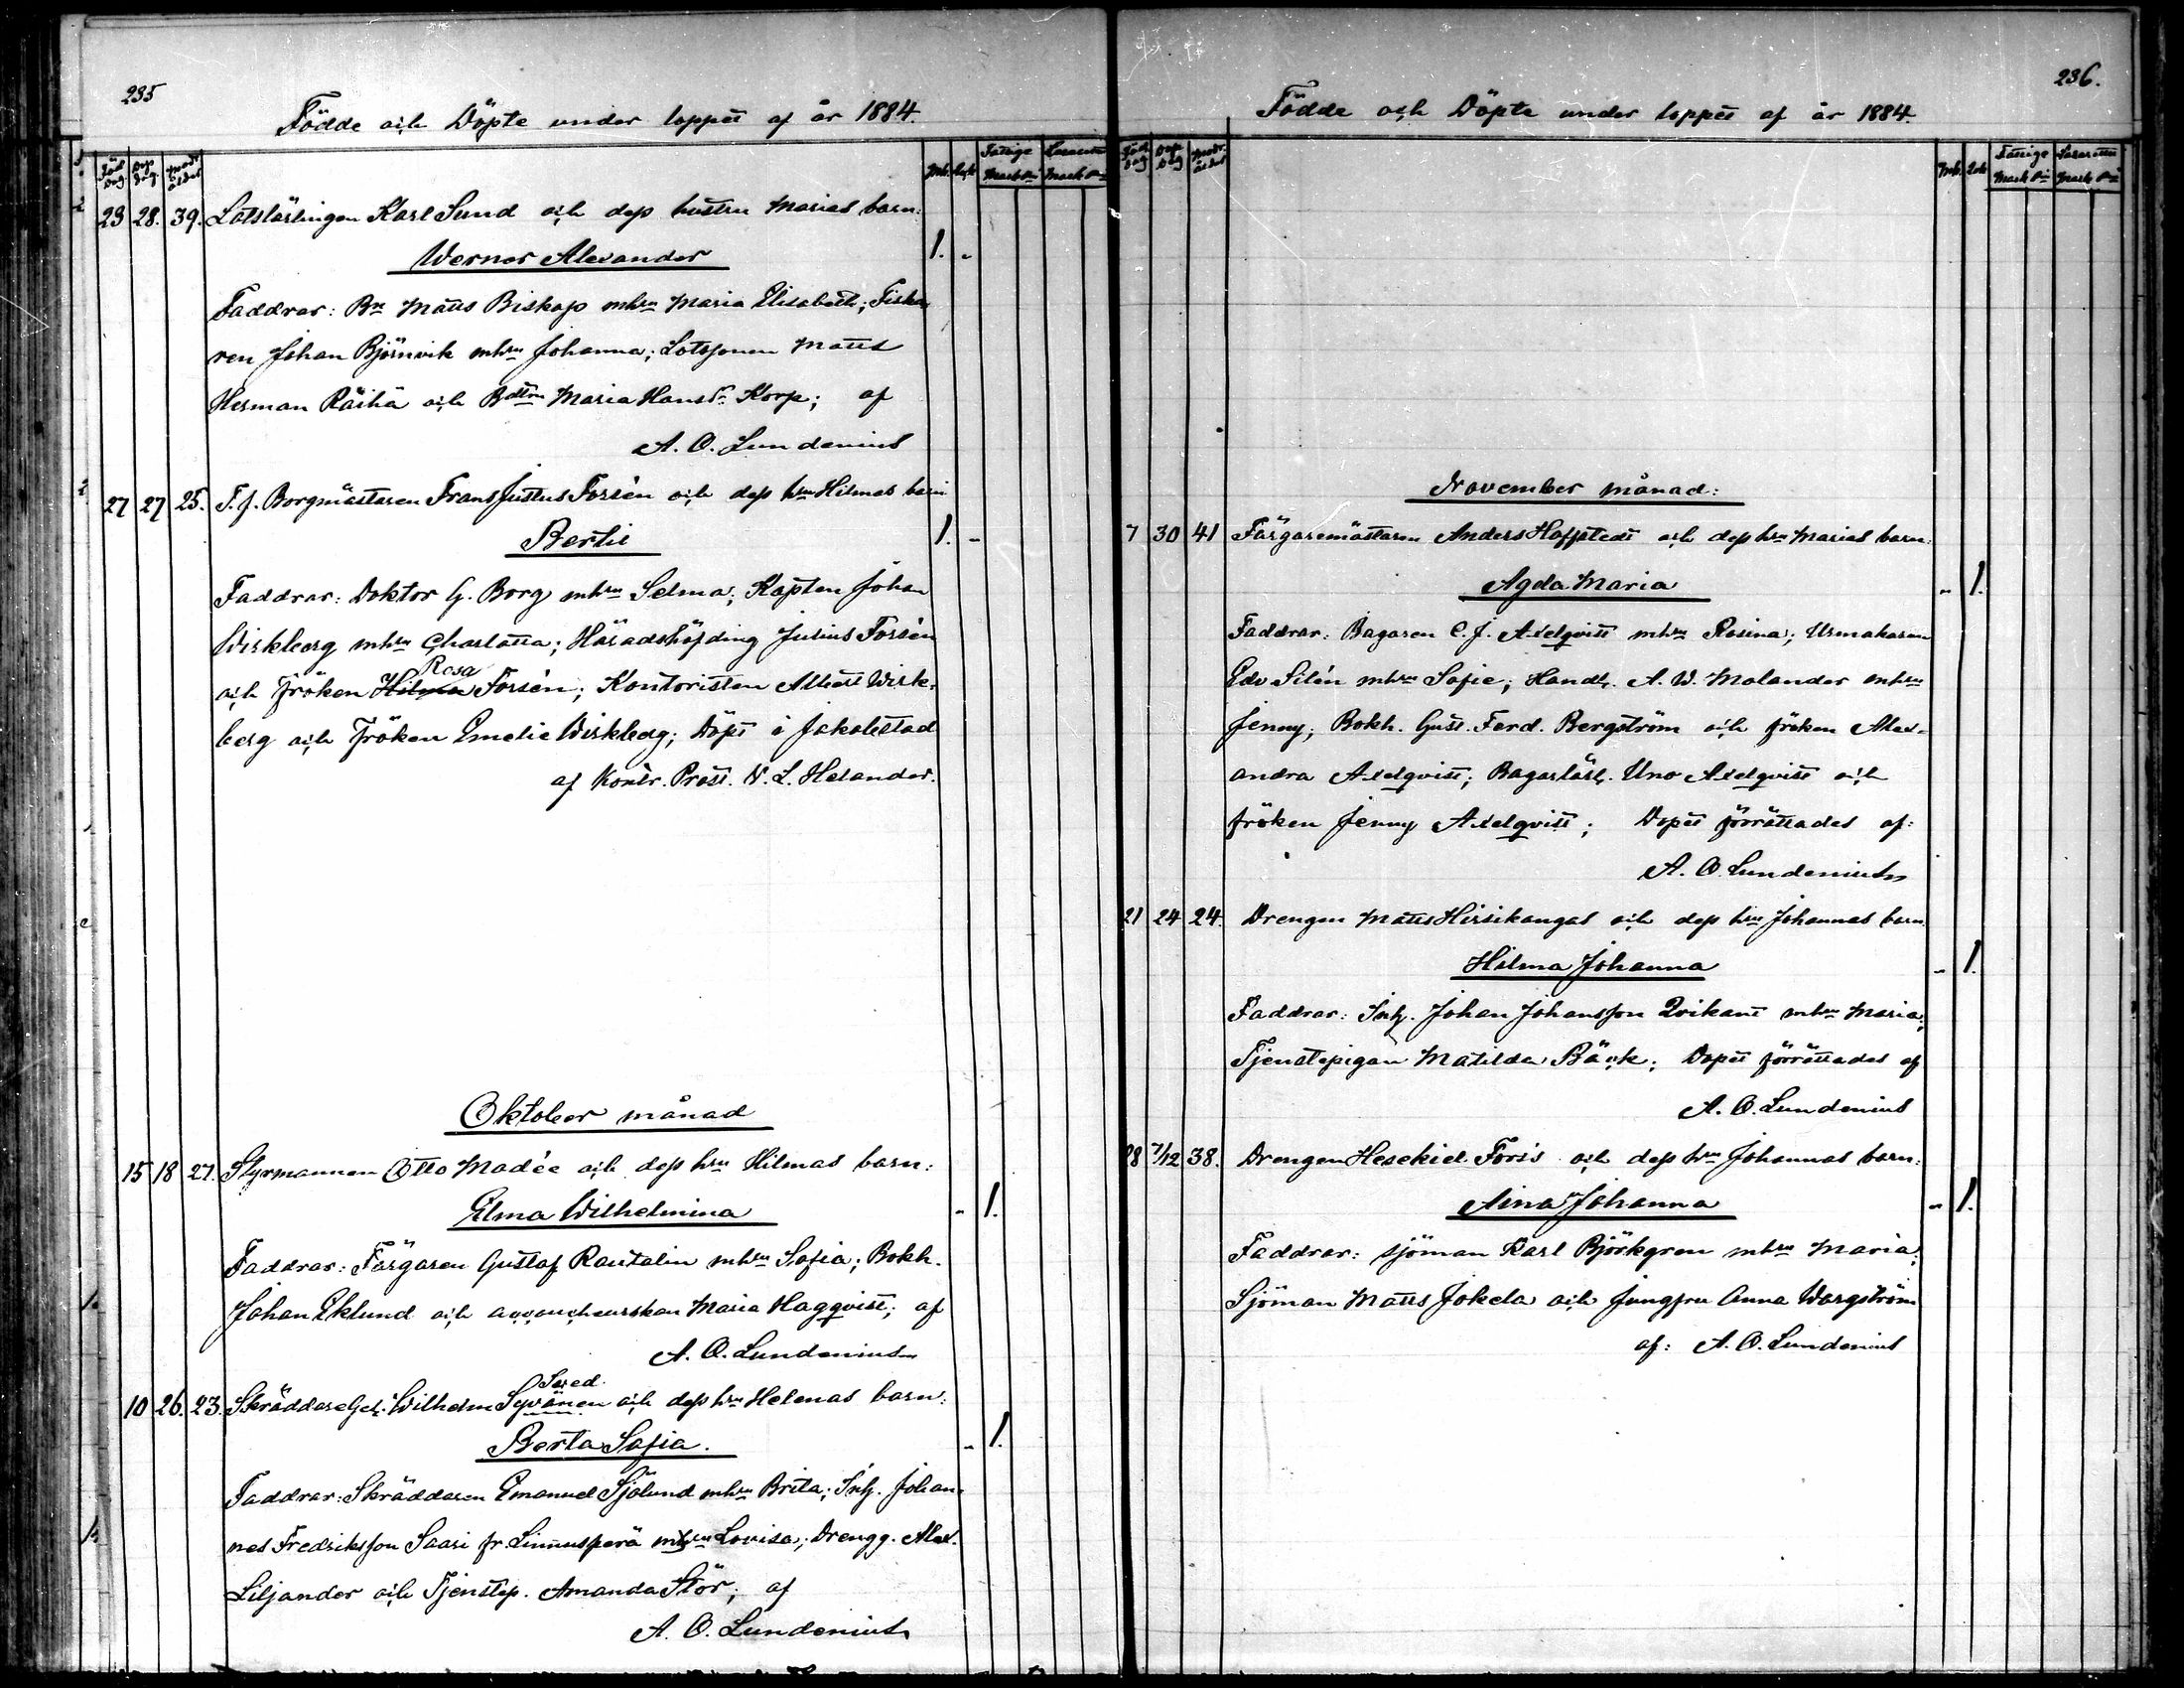 235
Födde och Döpte under loppet af år 1884.
Föd. Dag. Dop Dag. Modr. ålder Mk. Qk. Fattige Mark Pi Lazarettet Mark Pi
23 28. 39. Lotslärlingen Karl Sund och dess hustru Marias barn:
Werner Alexander 1. -
Faddrar: Bn Matts Biskop mhru Maria Elisabeth; Fiska-
ren Johan Björnvik mhru Johanna; Lotssonen Matts
Herman Räihä och Bdttrn Maria Hansdr Korp; af
A. O. Lundenius
27 27 25. T.f. Borgmästaren Frans Justus Forsén och dess hru Hilmas barn
Bertil 1. -
Faddrar: Doktor G. Borg mhru Selma; Kapten Johan
Wirkberg mhru Charlotta; Häradshöfding Julius Forsén
Rosa
och Fröken Hilma Forsén; Kontoristen Albert Wirk-
berg och Fröken Emelie Wirkberg; Döpt i Jakobstad
af Kontr. Prost. W. L. Helander.
Oktober månad
15 18 27. Styrmannen Otto Madée och dess hru Hilmas barn:
Elma Wilhelmina - 1.
Faddrar: Färgaren Gustaf Rautalin mhru Sofia; Bokh.
Johan Eklund och accoucheurskan Maria Hagqvist; af
A. O. Lundenius
10 26. 23. Skräddare Ges. Wilhelm Syvänen och dess hru Helenas barn:
Berta Sofia. - 1.
Faddrar: Skräddaren Emanuel Sjölund mhru Brita; Inh. Johan-
nes Fredriksson Saari fr. Linnusperä mhru Lovisa; Drengg. Alex.
Liljander och Tjenstep. Amanda Stör; af
A. O. Lundenius
236.
Födde och Döpte under loppet af år 1884.
Föd. dag Dop Dag Modr. ålder Mk. Qk. Fattige Mark Pi Lazarettet Mark Pi
November månad:
7 30 41 Färgaremästaren Anders Hoffstedt och dess hru Marias barn:
Agda Maria - 1.
Faddrar: Bagaren C. J. Axelqvist mhru Rosina; Urmakaren
Edv Silén mhru Sofie; Handl. A. W. Molander mhru
Jenny; Bokh. Gust. Ferd. Bergström och fröken Alex-
andra Axelqvist; Bagarlärl. Uno Axelqvist och
fröken Jenny Axelqvist; Dopet förrättades af:
A. O. Lundenius
21 24 24. Drengen Matts Hirsikangas och dess hru Johannas barn
Hilma Johanna - 1.
Faddrar: Inh. Johan Johansson Qvikant mhru Maria;
Tjenstepigan Matilda Bäck; Dopet förrättades af
A. O. Lundenius
28 7/12 38. Drengen Hesekiel Fors och dess hru Johannas barn:
Aina Johanna - 1.
Faddrar: sjöman Karl Björkgren mhru Maria;
Sjöman Matts Jokela och Jungfru Anna Wargström
af: A. O. Lundenius